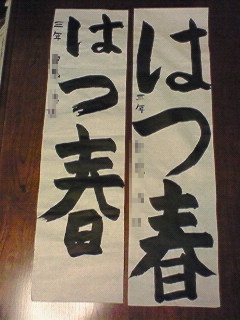 はつ春
三年
はつ春
三年